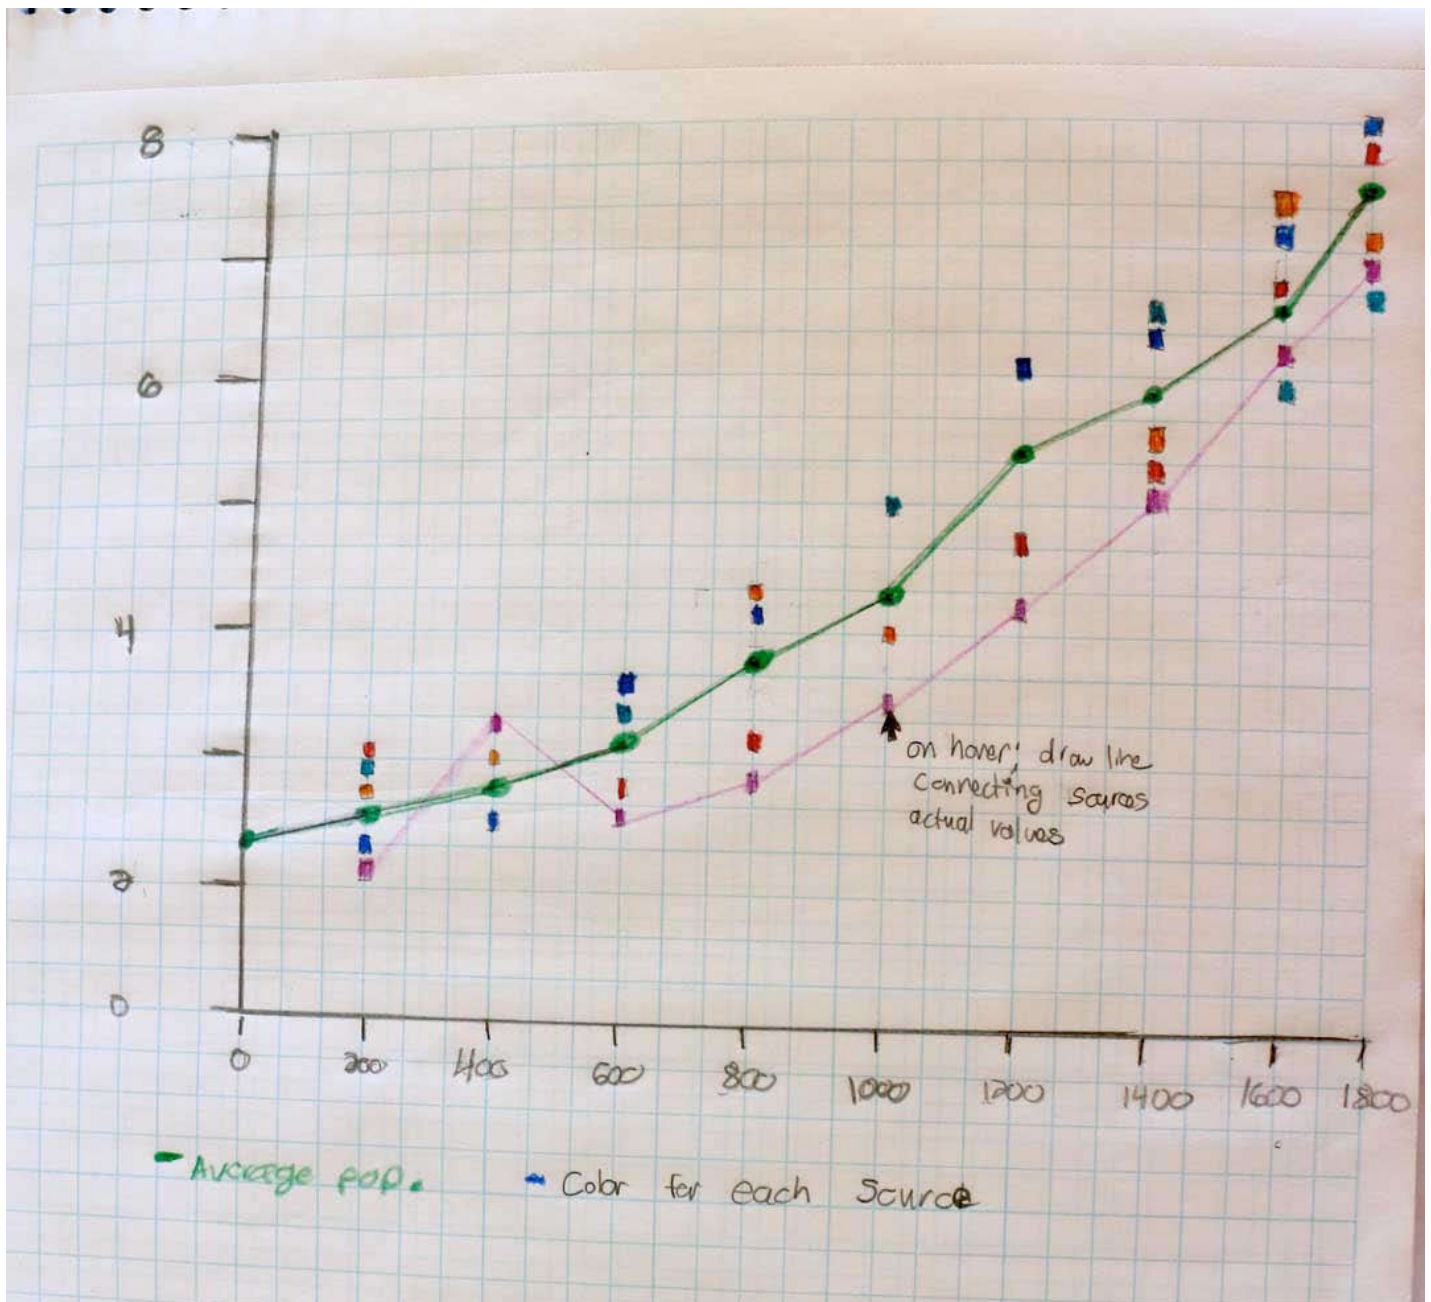 8
6
4
2
0
0 200 400 600 800 1000 1200 1400 1600 1800
on hover; draw line
connecting sources
actual values
Average pop.
Color for each Source